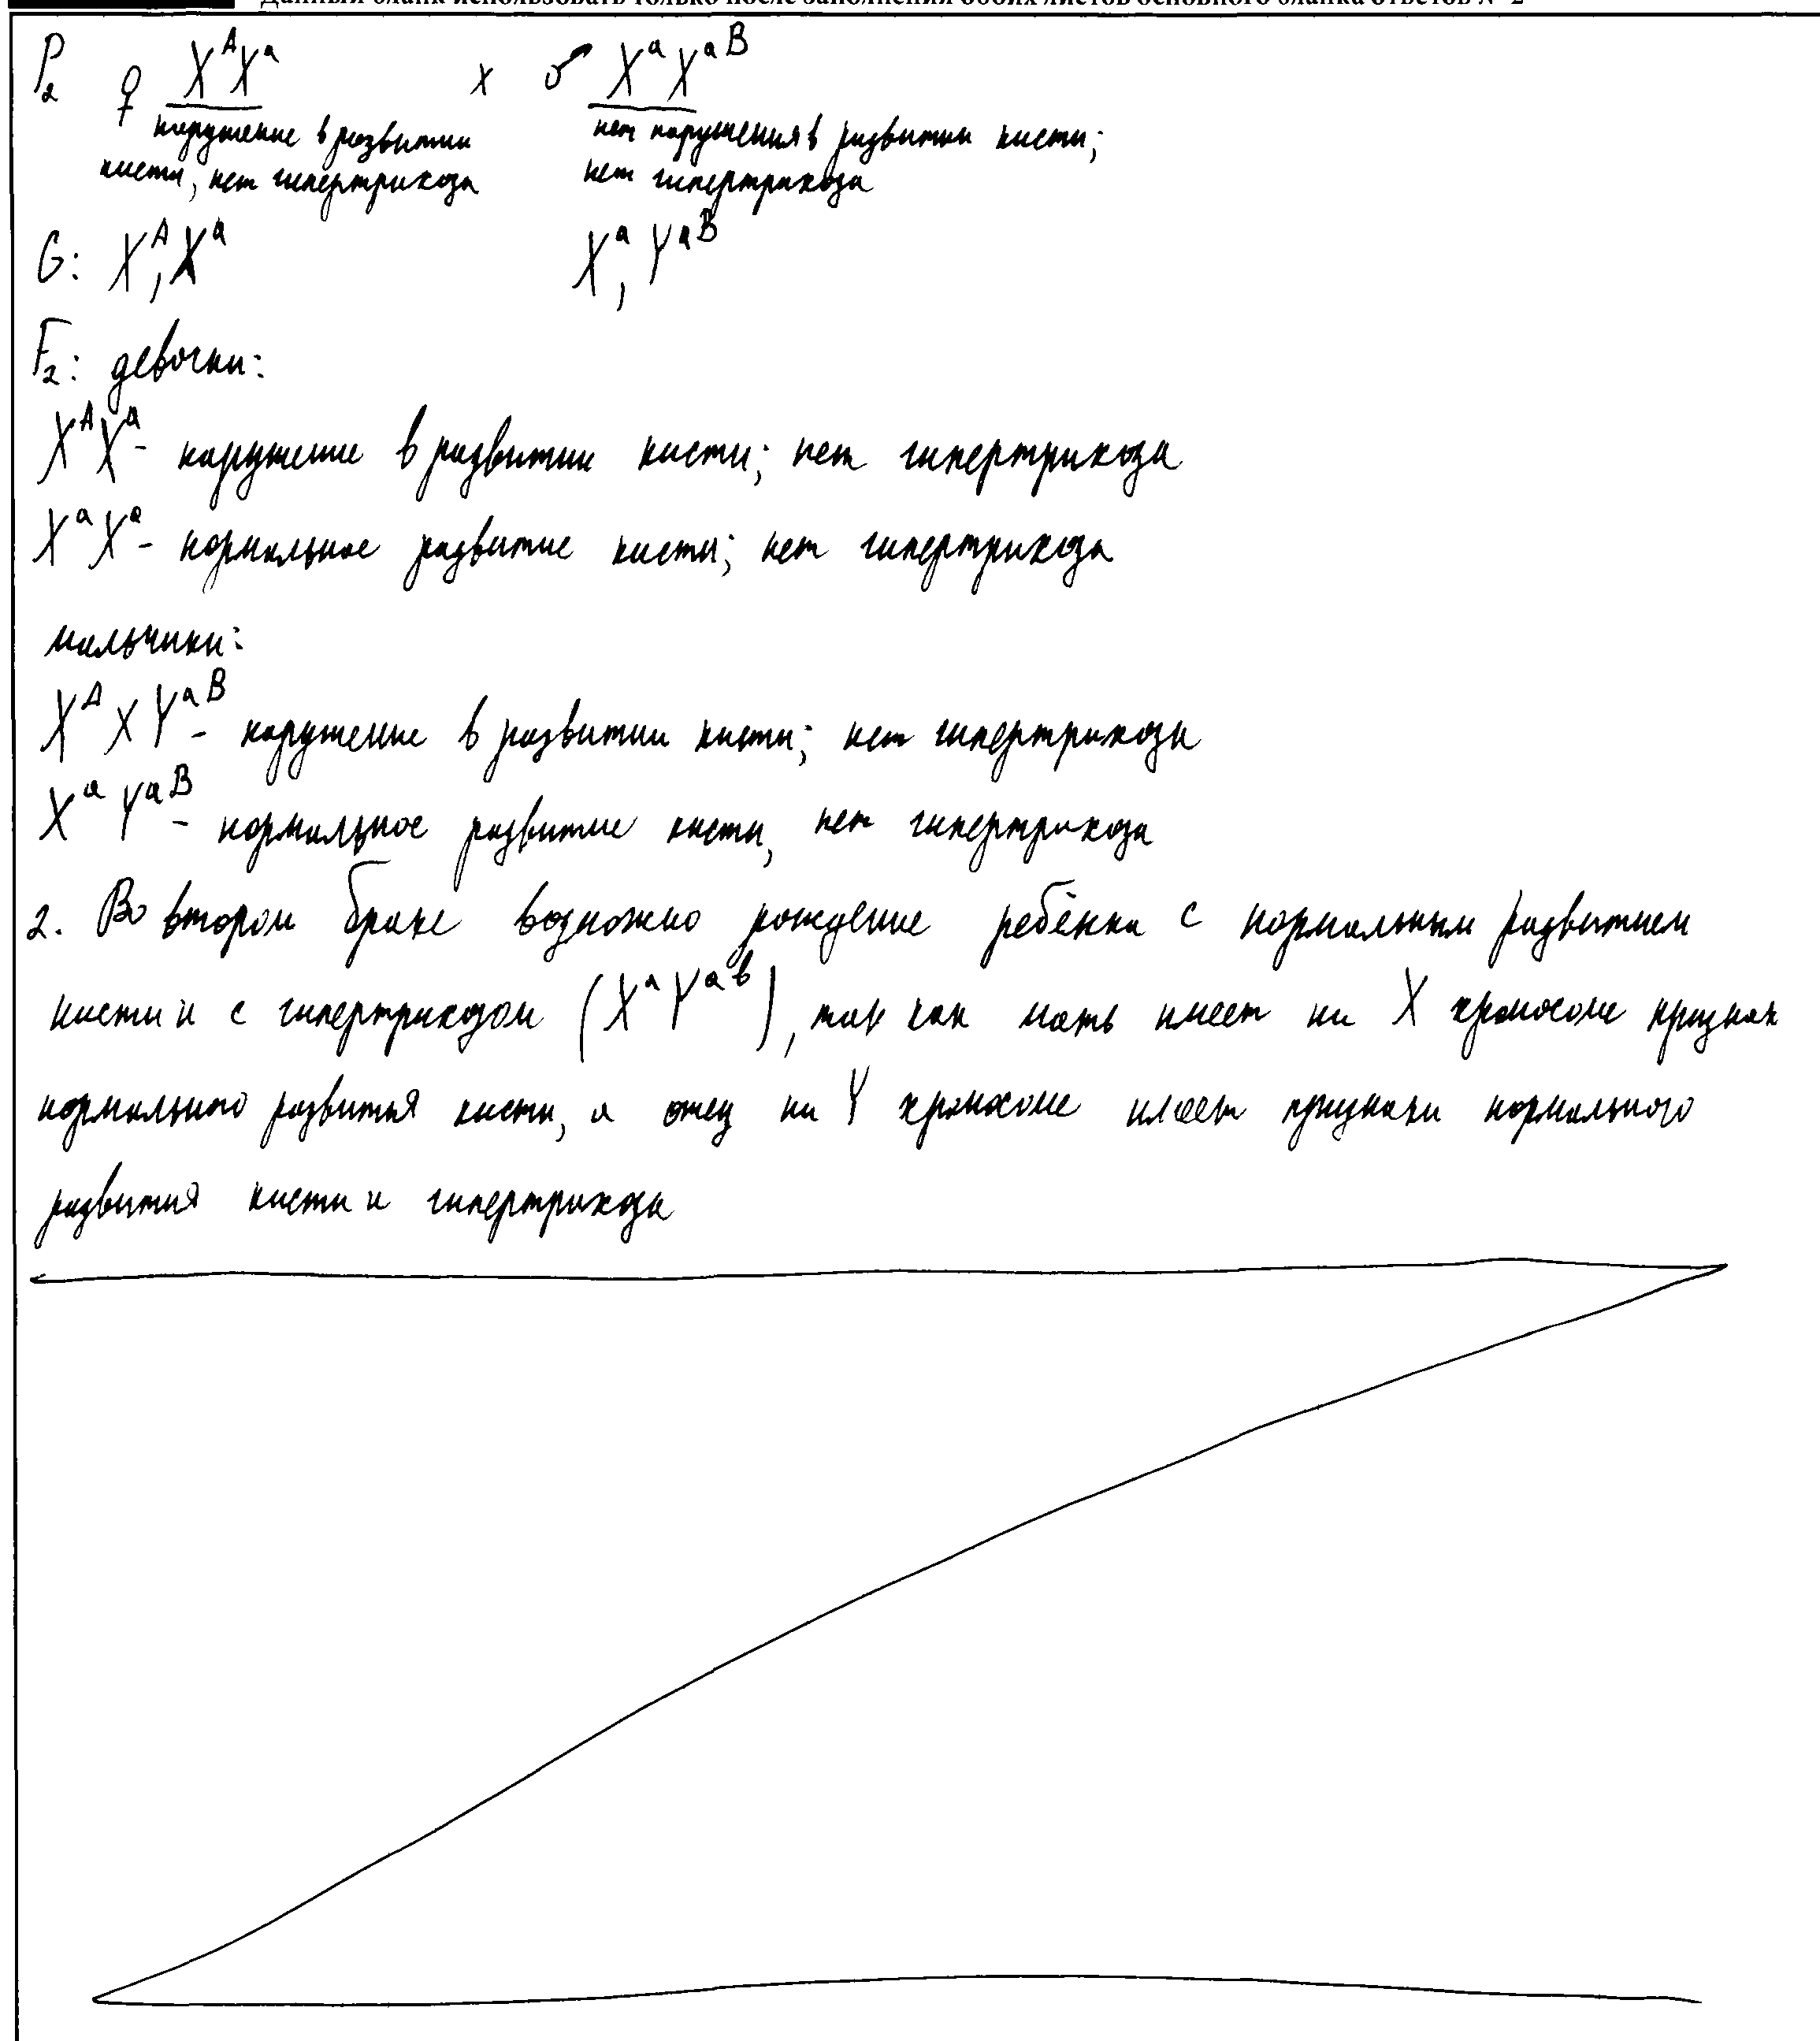 Данный бланк использовать только после заполнения обоих листов основного бланка ответов № 2
P₂ ♀ XᴬXᵃ x ♂ XᵃXᵃᴮ
нарушение в развитии нет нарушения в развитии кисти;
кисти, нет гипертрихоза нет гипертрихоза
G: Xᴬ, Xᵃ Xᵃ, Yᵃᴮ
F₂: девочки:
XᴬXᵃ - нарушение в развитии кисти; нет гипертрихоза
XᵃXᵃ - нормальное развитие кисти; нет гипертрихоза
мальчики:
Xᴬ X Yᵃᴮ - нарушение в развитии кисти; нет гипертрихоза
XᵃYᵃᴮ - нормальное развитие кисти, нет гипертрихоза
2. Во втором браке возможно рождение ребёнка с нормальным развитием
кисти и с гипертрихозом (XᵃYᵃᵇ), так как мать имеет на X хромосоме признак
нормального развития кисти, а отец на Y хромосоме имеет признаки нормального
развития кисти и гипертрихоза